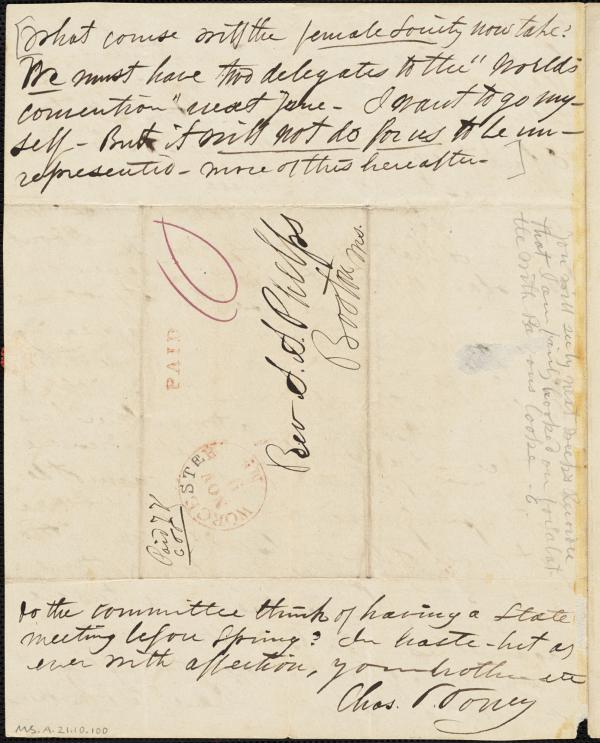 [What course will the female Society now take?
We must have two delegates to the "World's
convention" next June - I want to go my-
self - But it will not do for us to be un-
represented - more of this hereafter - ]
PAID
10
Rev A. A. Phelps
Boston Ms.
WORCESTER MS
NOV
Paid
you will see by next week's
that I am
the
loose -
do the committee think of having a State
meeting before Spring? In haste - but as
ever with affection, your brother etc
Chas. T. Torrey
MS. A. 21.10.100